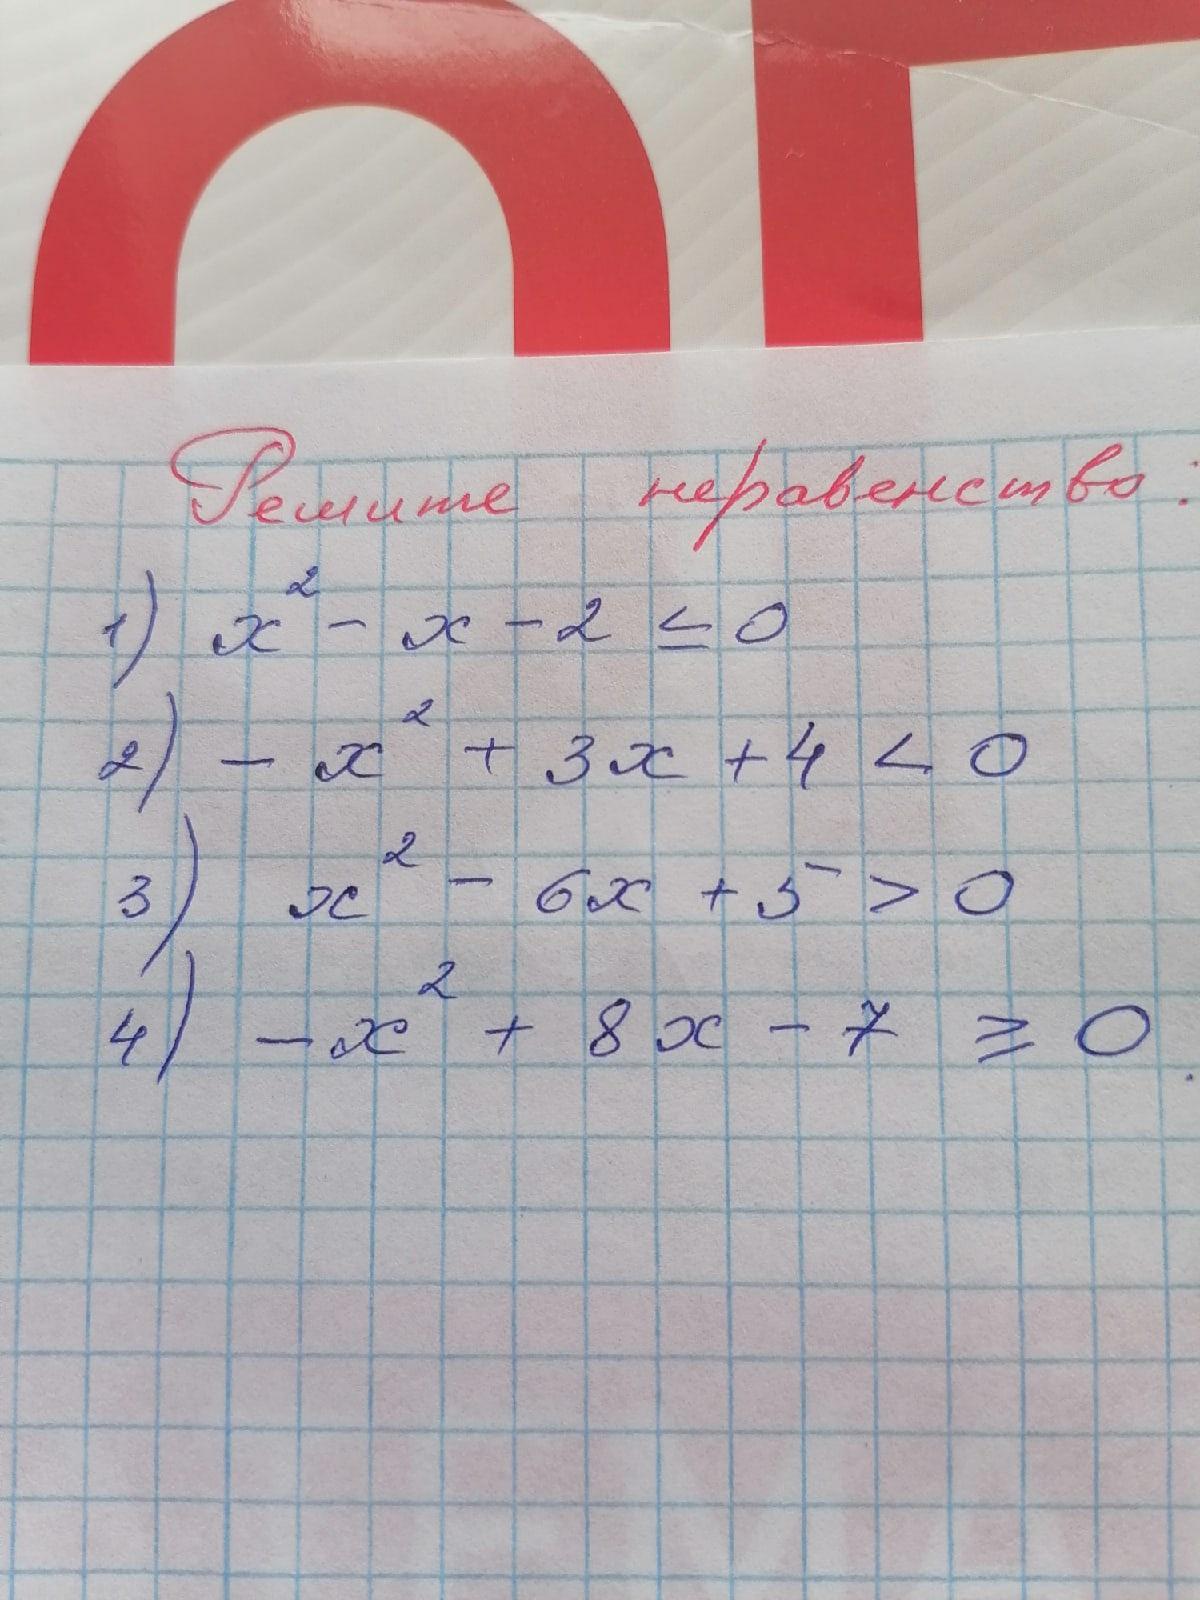 Решите неравенство:
1) x² - x - 2 ≤ 0
2) - x² + 3x + 4 < 0
3) x² - 6x + 5 > 0
4) - x² + 8x - 7 ≥ 0